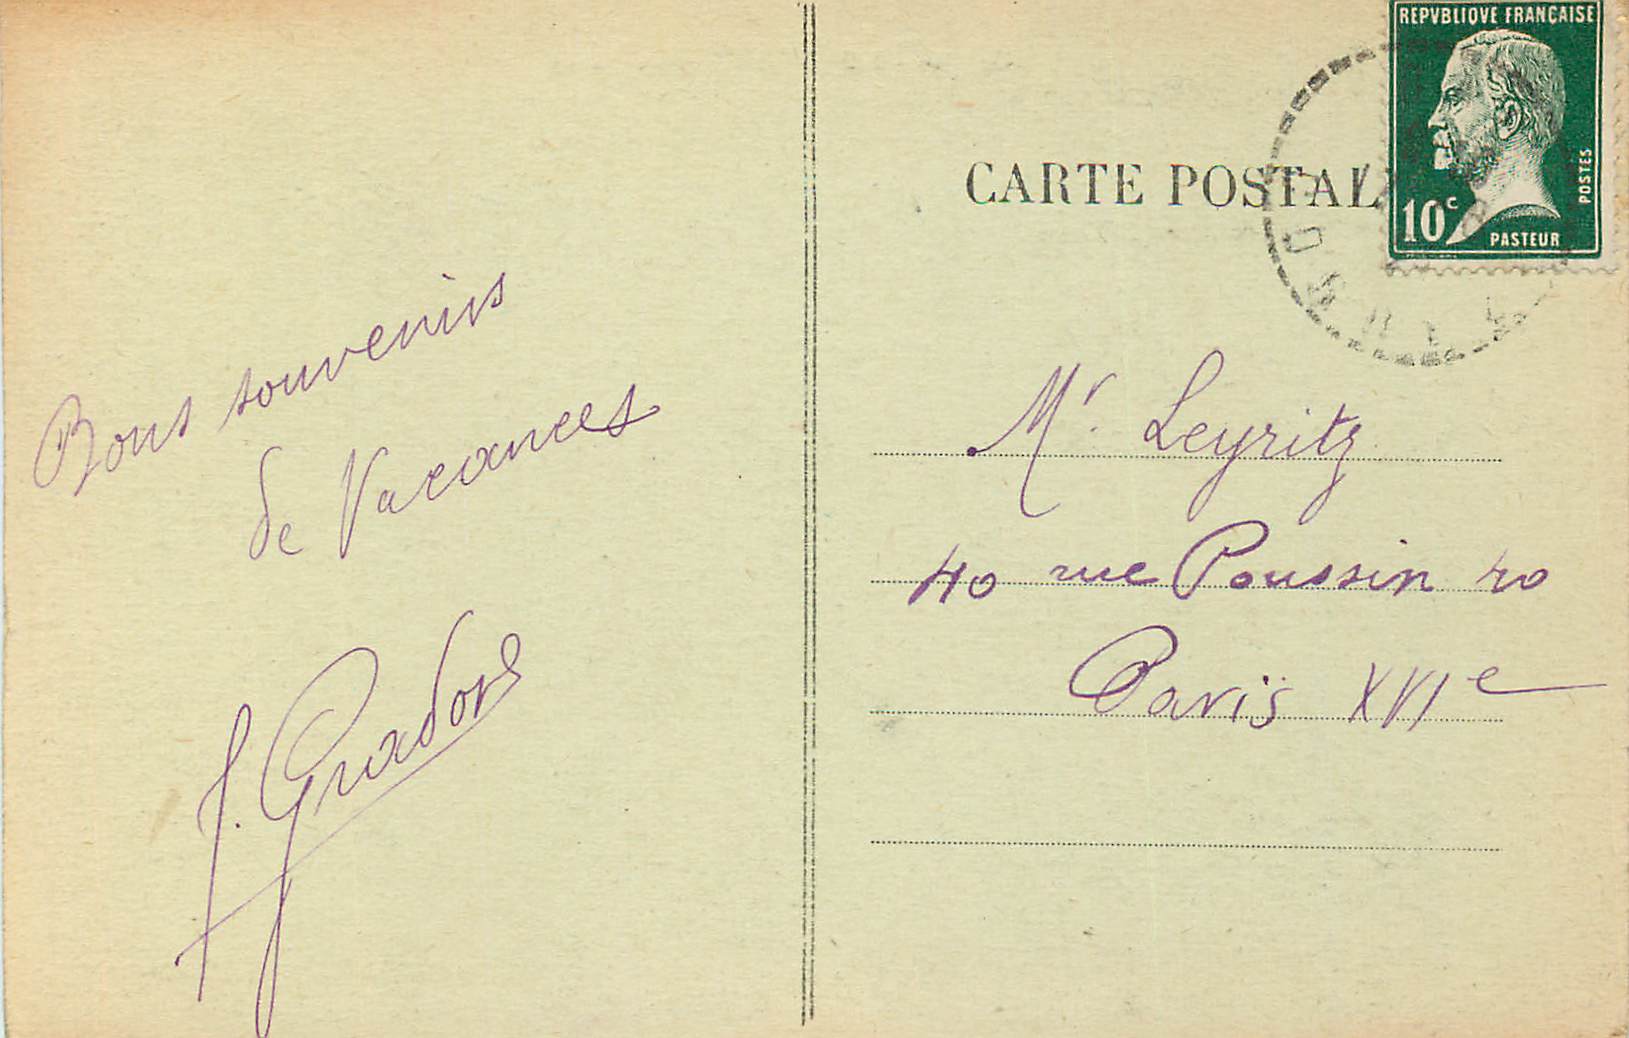 Bons souvenirs
de Vacances
CARTE POSTAL
REPVBLIQVE FRANÇAISE
POSTES
10c
PASTEUR
Mr. Leyritz
40 rue Poussin 40
Paris XVIe